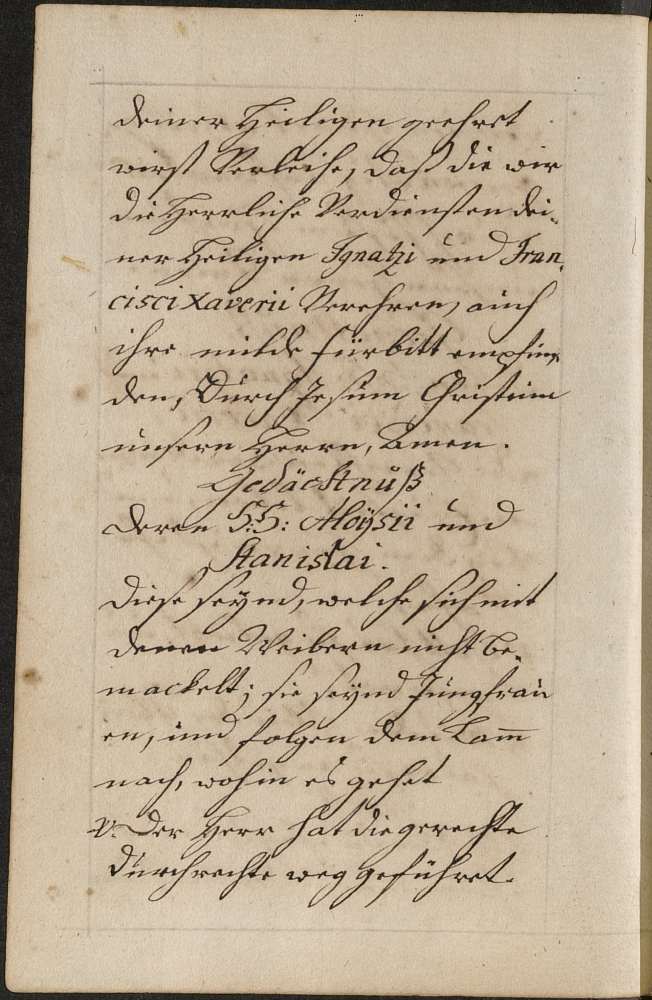 deiner Heiligen geehret
wirst Verleihe, daß die wir
die Herrliche Verdiensten dei-
ner Heiligen Ignatzi und Fran-
cisci Xaverii Verehren, auch
ihre milde fürbitt empfin-
den, Durch Jesum Christum
unsern Herrn, Amen.
Gedächtnuß
deren S.S: Aloÿsii und
Stanislai.
Diese seÿnd, welche sich mit
denen Weibern nicht be-
mackelt; sie seÿnd Jungfrau
en, und folgen dem Lam̄
nach, wohin es gehet
V. Der Herr hat die gerechte
durch rechte weg geführet.